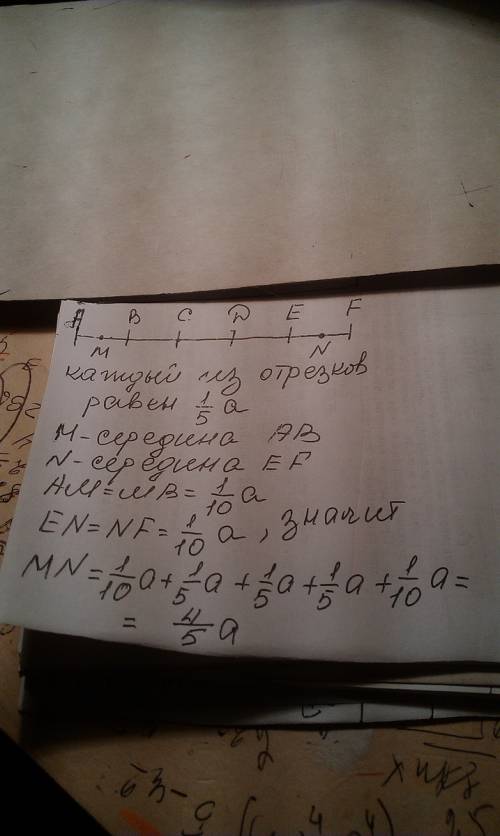 A B C D E F
M N
каждый из отрезков
равен 1/5 a
M-середина AB
N-середина EF
AM=MB= 1/10 a
EN=NF= 1/10 a, значит
MN= 1/10 a+ 1/5 a + 1/5 a+ 1/5 a + 1/10 a=
= 4/5 a